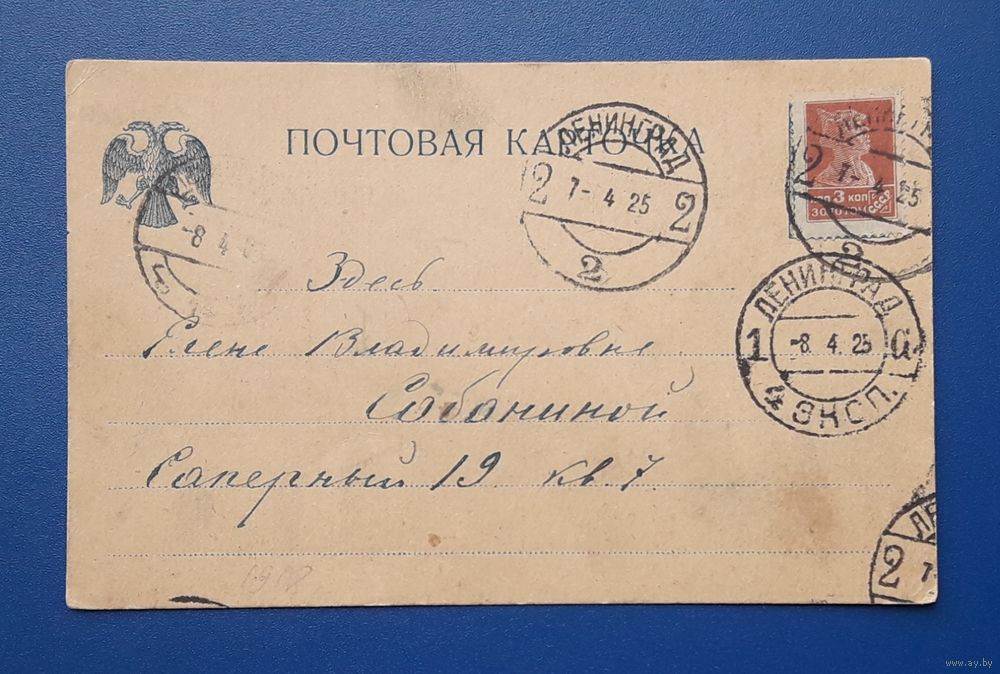 ПОЧТОВАЯ КАРТОЧКА
ЛЕНИНГРАД
2 7- 4 25 2
2
2 7- 4 25
2
КОП 3 КОП
ЗОЛОТОМ
СССР
-8 4
Здесь.
ЛЕНИНГРАД
1 -8. 4. 25 6
4 ЭКСП.
Елене Владимировне
Сабаниной
Саперный 19 кв. 7.
ЛЕ
2 7-
www.ay.by